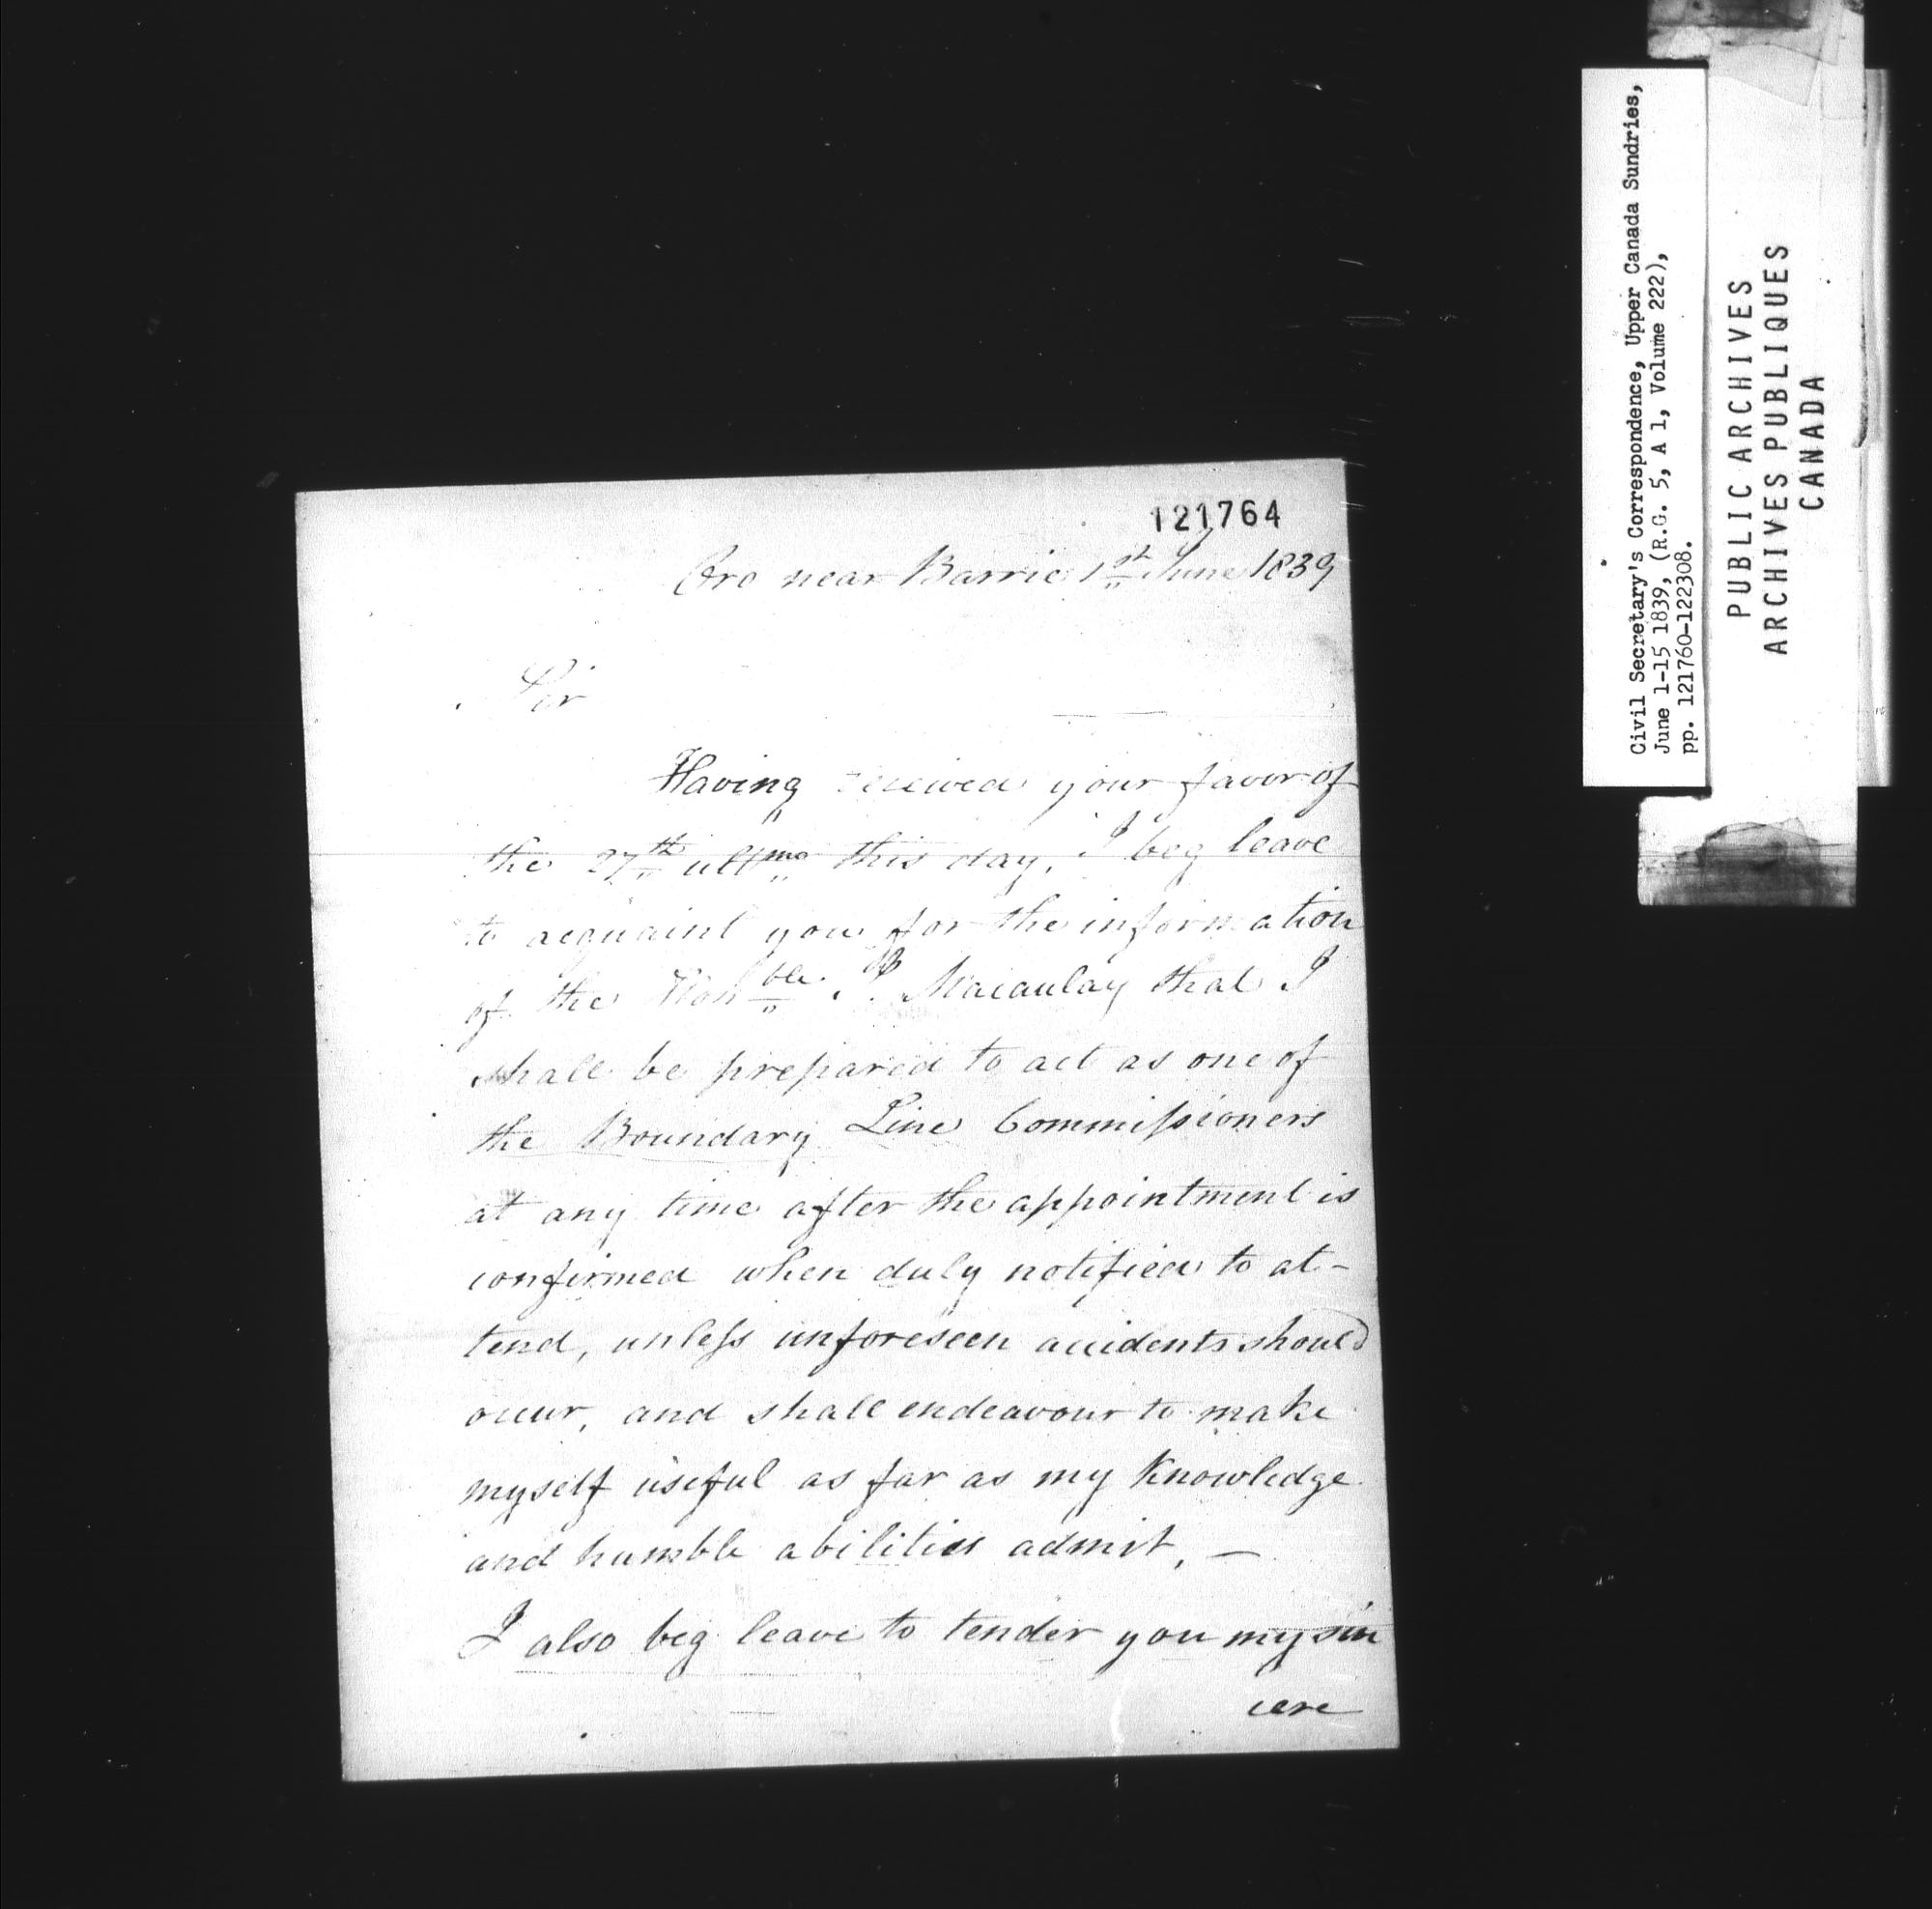 121764
Oro near Barrie 1st June 1839
Sir
Having received your favor of
the 27th ultmo this day, I beg leave
to acquaint you for the information
of the Honble. J. Macaulay that I
shall be prepared to act as one of
the Boundary Line Commissioners
at any time after the appointment is
confirmed when duly notified to at-
tend, unless unforeseen accidents should
occur, and shall endeavour to make
myself useful as far as my Knowledge
and humble abilities admit, —
I also beg leave to tender you my sin
cere
Civil Secretary's Correspondence, Upper Canada Sundries,
June 1-15 1839, (R.G. 5, A 1, Volume 222),
pp. 121760-122308.
PUBLIC ARCHIVES
ARCHIVES PUBLIQUES
CANADA